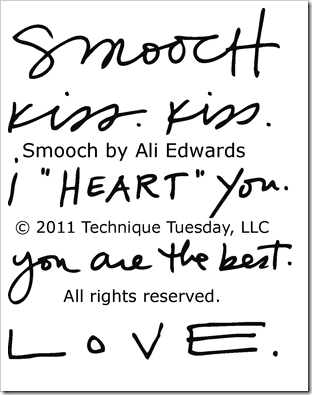 SMOOCH
kiss. kiss.
Smooch by Ali Edwards
i "HEART" you.
© 2011 Technique Tuesday, LLC
you are the best.
All rights reserved.
LOVE.